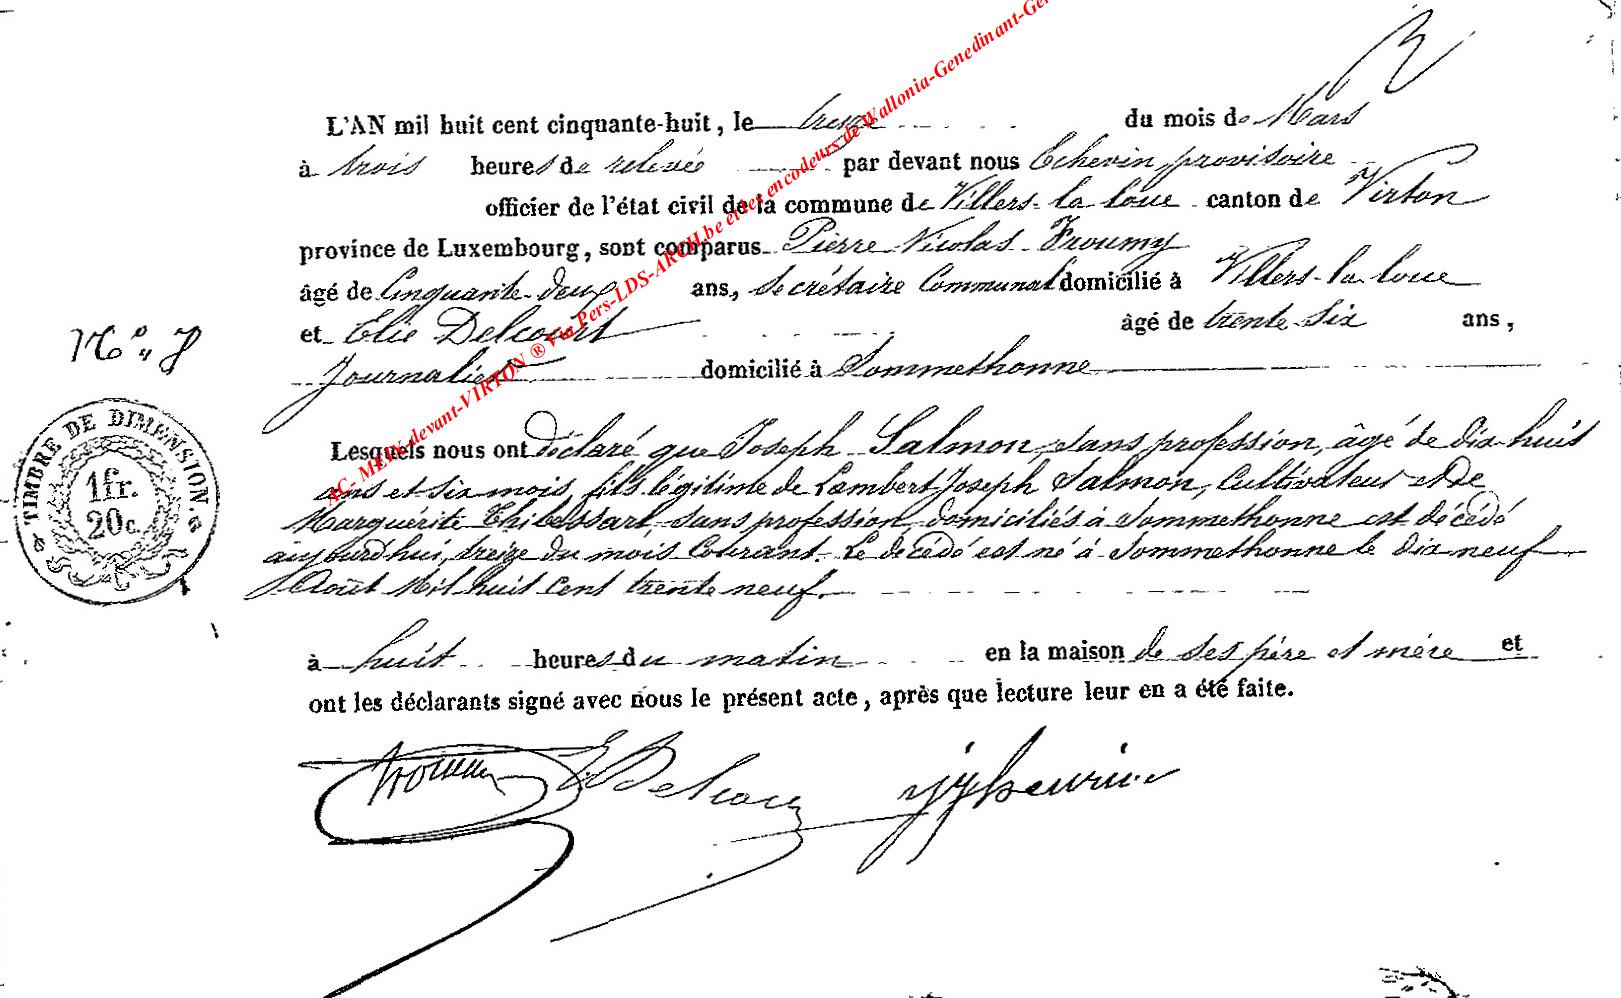 L'AN mil huit cent cinquante-huit, le treize du mois de Mars
à trois heures de relevée par devant nous Echevin provisoire
officier de l'état civil de la commune de Villers-la-loue canton de Virton
province de Luxembourg, sont comparus Pierre Nicolas Froumy
âgé de Cinquante-deux ans, Secrétaire Communal domicilié à Villers-la-loue
et Elie Delcourt âgé de trente-six ans,
Journalier domicilié à Sommethonne
Lesquels nous ont déclaré que Joseph Salmon, sans profession, âgé de dix-huit
ans et six mois, fils légitime de Lambert Joseph Salmon, Cultivateur et de
Marguérite Thibessart, sans profession, domiciliés à Sommethonne est décédé
aujourd'hui, treize du mois Courant. Le décédé est né à Sommethonne le dix neuf
Août Mil huit Cent trente neuf.
à huit heures du matin en la maison de ses père et mère et
ont les déclarants signé avec nous le présent acte, après que lecture leur en a été faite.
TIMBRE DE DIMENSION.
1 fr.
20 c.
AC- MEIX-devant-VIRTON ® Via Pers-LDS-ARCH.be et les encodeurs de Wallonia-Genedinant-Ge